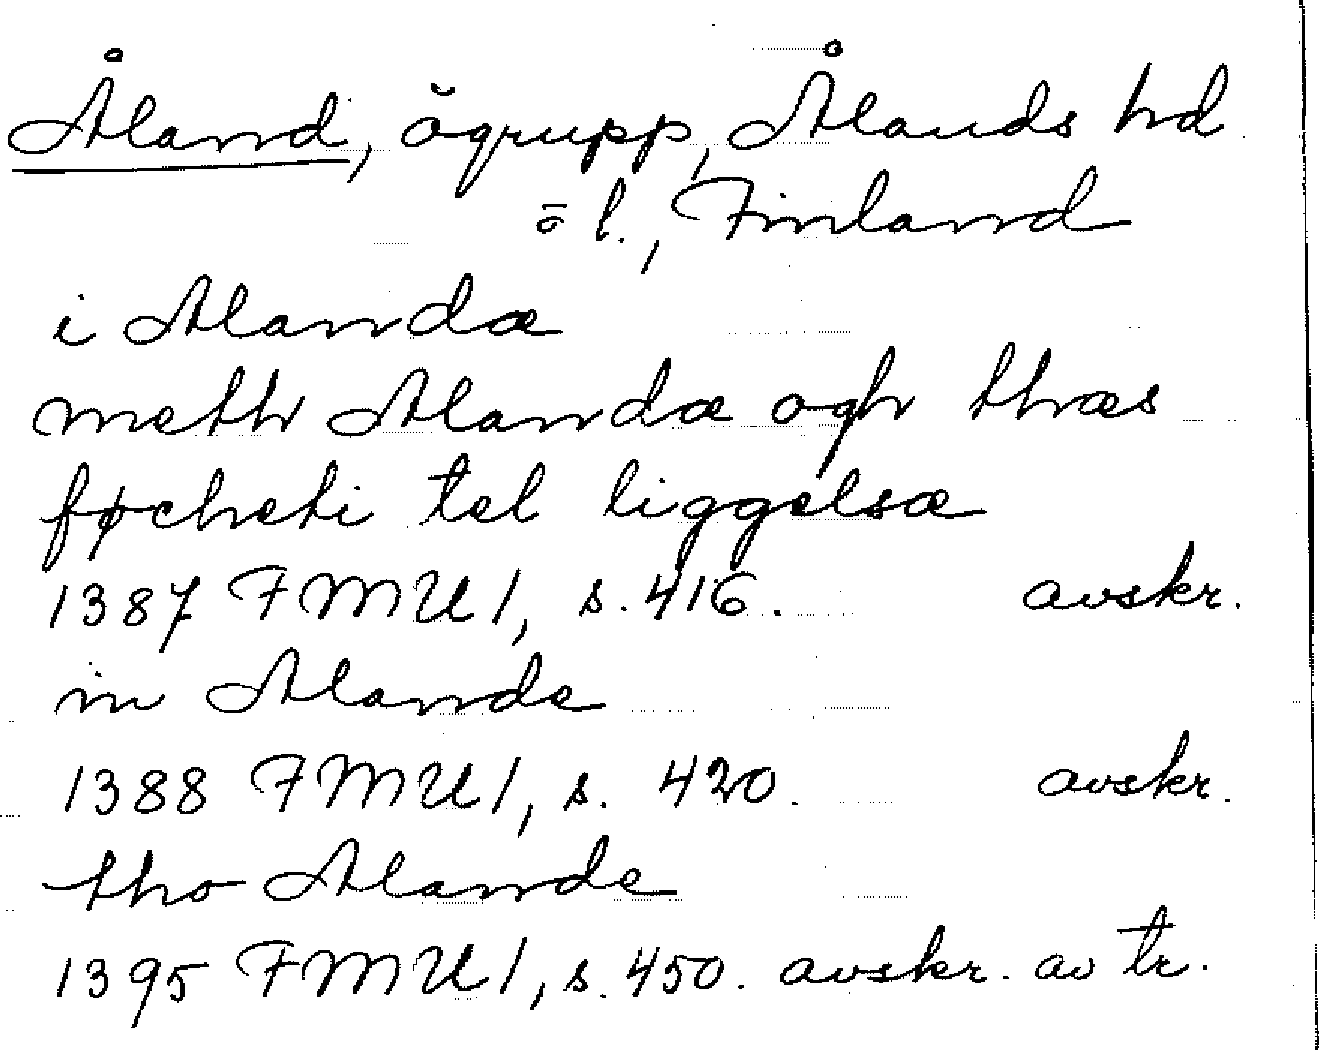 Åland, ögrupp, Ålands hd
ö l., Finland
i Alandæ
meth Alandæ ogh thæs
føcheti tel liggelsæ
1387 FMU 1, s. 416. avskr.
in Alande
1388 FMU 1, s. 420. avskr.
tho Alande
1395 FMU 1, s. 450. avskr. av tr.